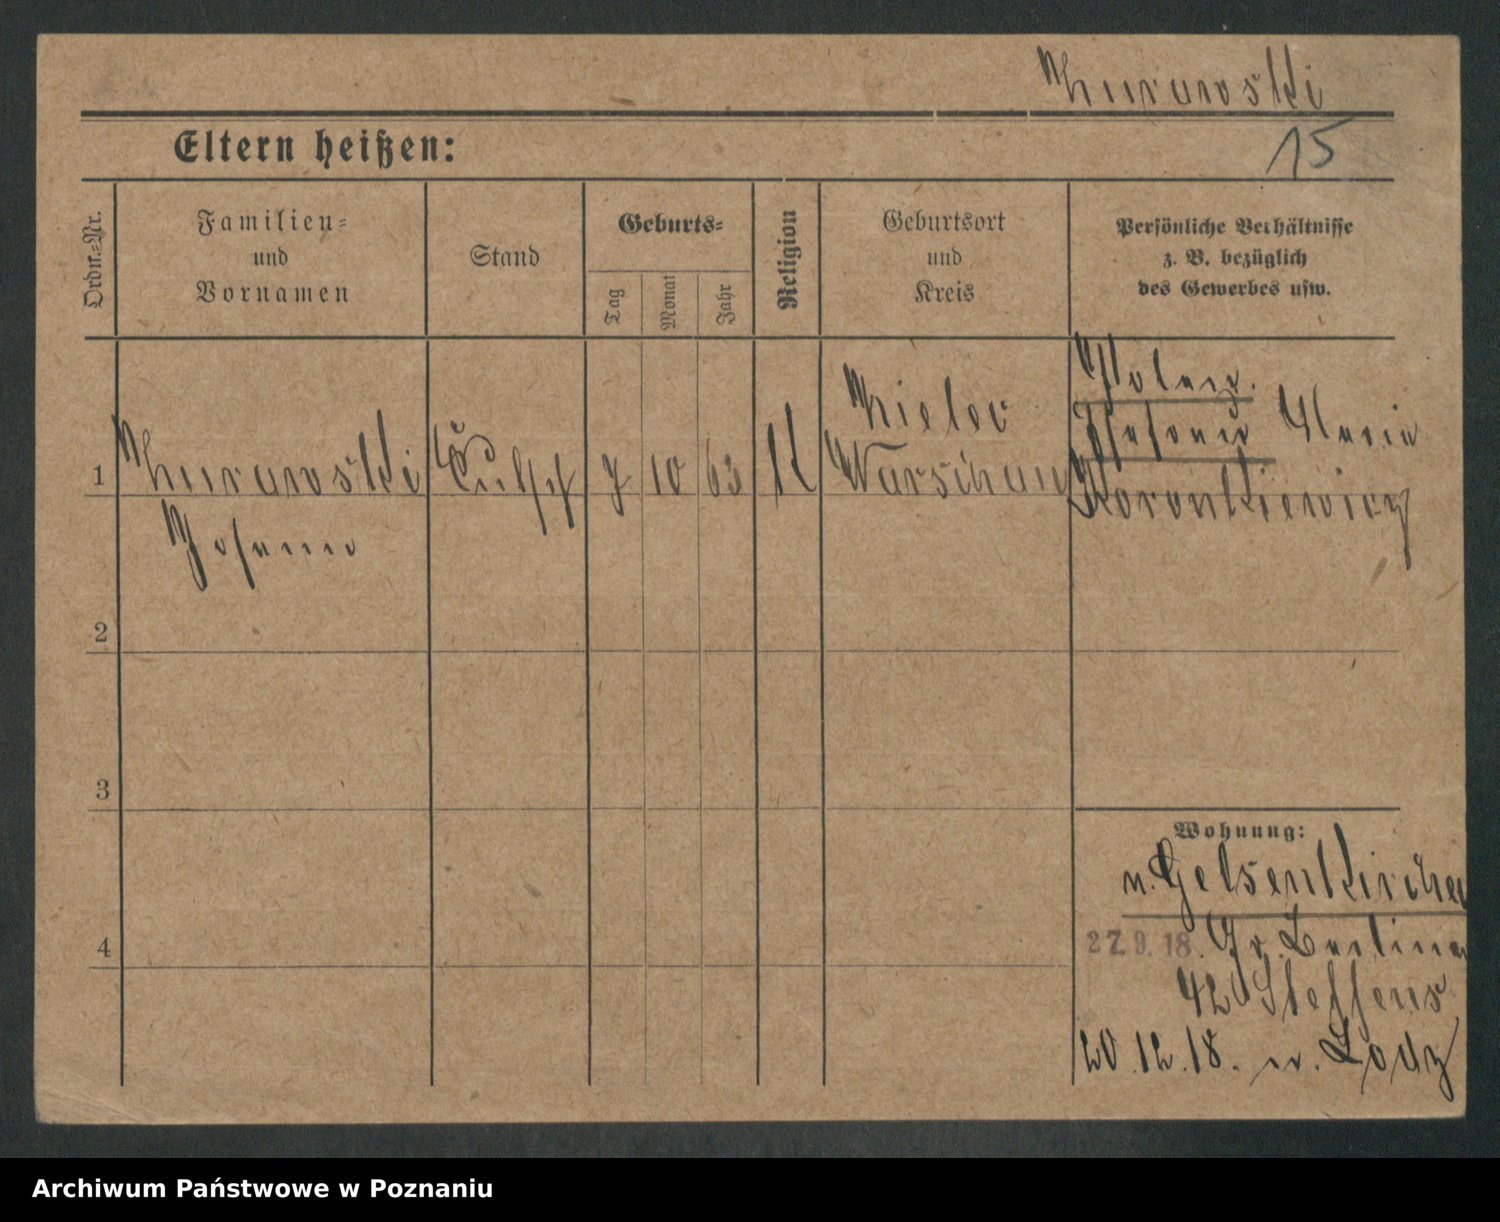 Zurawski
15
Eltern heißen:
Ordn.-Nr.
Familien-
und
Vornamen
Stand
Geburts-
Tag
Monat
Jahr
Religion
Geburtsort
und
Kreis
Persönliche Verhältnisse
z. B. bezüglich
des Gewerbes usw.
1
Zurawski
7 10 63
K
Kielec
Warschau
Polen.
Marie
Koronkiewicz
2
3
4
Wohnung:
n. Gelsenkirchen
27.9.18. Gr. Berliner
42 Steffens
20.12.18. n. Lodz
Archiwum Państwowe w Poznaniu